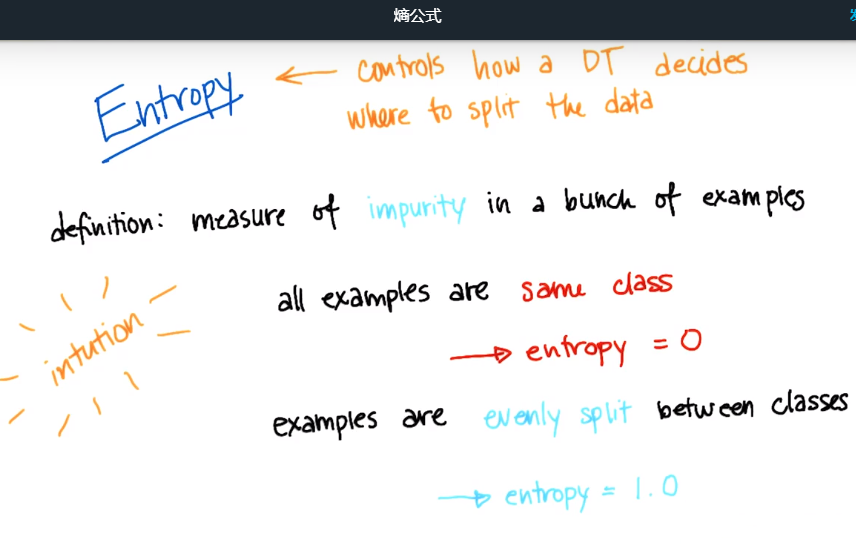 熵公式
Entropy ← controls how a DT decides
where to split the data
definition: measure of impurity in a bunch of examples
all examples are same class
→ entropy = 0
intution
examples are evenly split between classes
→ entropy = 1.0